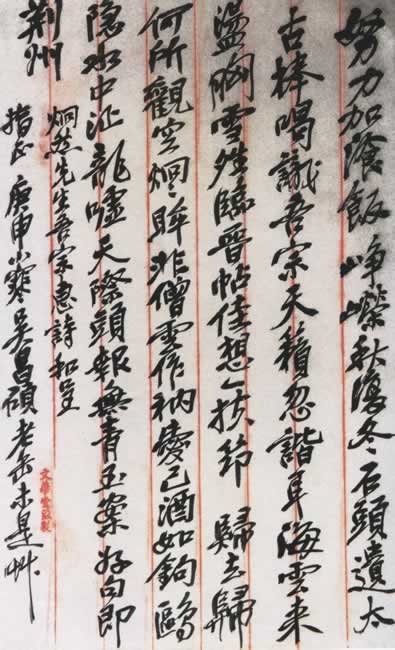 努力加飡飯崢嶸秋復冬石頭遺太
古棒喝識吾宗天籟忽諧阜海雲来
盪胸雪殘臨晉帖佳想入扶筇 歸去歸
何所觀空炯炯眸非僧雲作衲愛己酒如鉤鷗
隱水中沚龍噓天際頭報無青玉案好句即
荆州
炯然先生吾宗惠詩和呈
指正 庚申小寒吳昌碩老缶未是艸